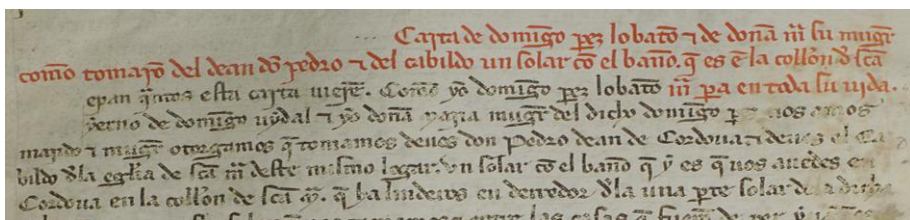 Carta de domīgo ꝑez lobato ⁊ de doña mͣ su mugr̄
como tomarō del dean dō pedro ⁊ del cabildo un solar cō el baño. q̄ es ē la collōn d̄ sc̄a
epan qͣntos esta carta uierē. Como yo domīgo ꝑez lobato mͣ ꝑa en toda su uida.
yerno de domīgo uydal ⁊ yo doña maria mugr̄ del dicho domīgo ꝑez nos amos
marido ⁊ mugr̄ otorgamos q̄ tomamos de uos don Pedro dean de Cordoua ⁊ de uos el Ca
bildo d̄la eglīa de sc̄a mͣ deste mismo logar. vn solar cō el baño q̄ y es q̄ uos auedes en
Cordoua en la collōn de sc̄a mͣ. q̄ ha linderos en derredor d̄la una ꝑte solar de la dicha
las casas q̄